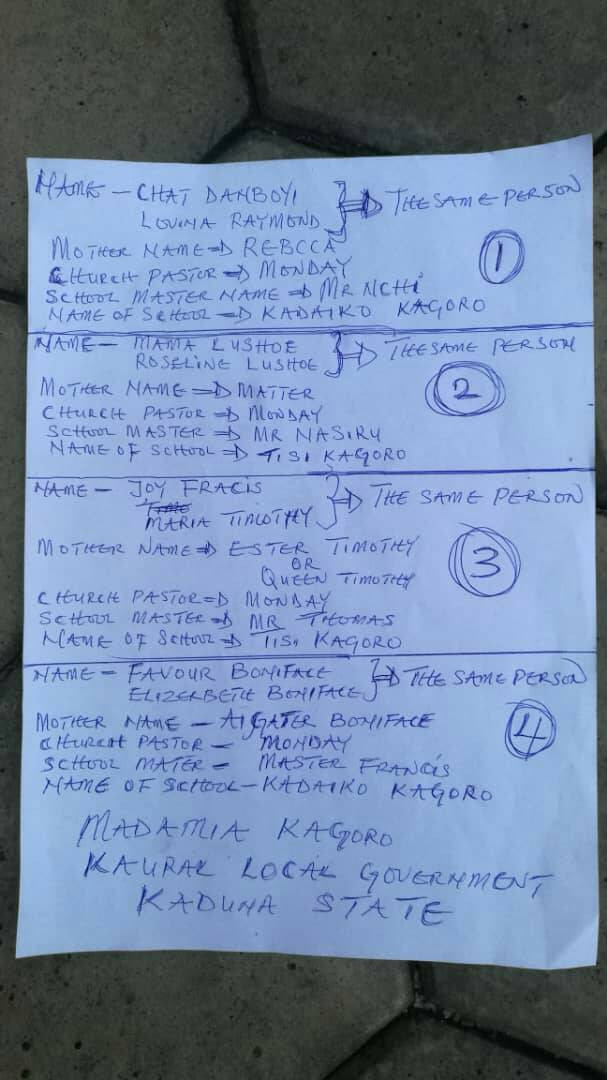 NAME - CHAT DANBOYI
LOVINA RAYMOND } => THE SAME PERSON
MOTHER NAME => REBCCA
CHURCH PASTOR => MONDAY
SCHOOL MASTER NAME => MR NCHI
NAME OF SCHOOL => KADAIKO KAGORO
1
NAME - MAMA LUSHOE
ROSELINE LUSHOE } => THE SAME PERSON
MOTHER NAME => MATTER
CHURCH PASTOR => MONDAY
SCHOOL MASTER => MR NASIRU
NAME OF SCHOOL => T.S. KAGORO
2
NAME - JOY FRACIS
MARIA TIMOTHY } => THE SAME PERSON
MOTHER NAME => ESTER TIMOTHY
OR
QUEEN TIMOTHY
CHURCH PASTOR => MONDAY
SCHOOL MASTER => MR THOMAS
NAME OF SCHOOL => T.S. KAGORO
3
NAME - FAVOUR BONIFACE
ELIZERBETH BONIFACE } => THE SAME PERSON
MOTHER NAME - AIGATER BONIFACE
CHURCH PASTOR - MONDAY
SCHOOL MATER - MASTER FRANCIS
NAME OF SCHOOL - KADAIKO KAGORO
4
MADAMIA KAGORO
KAURAL LOCAL GOVERNMENT
KADUNA STATE